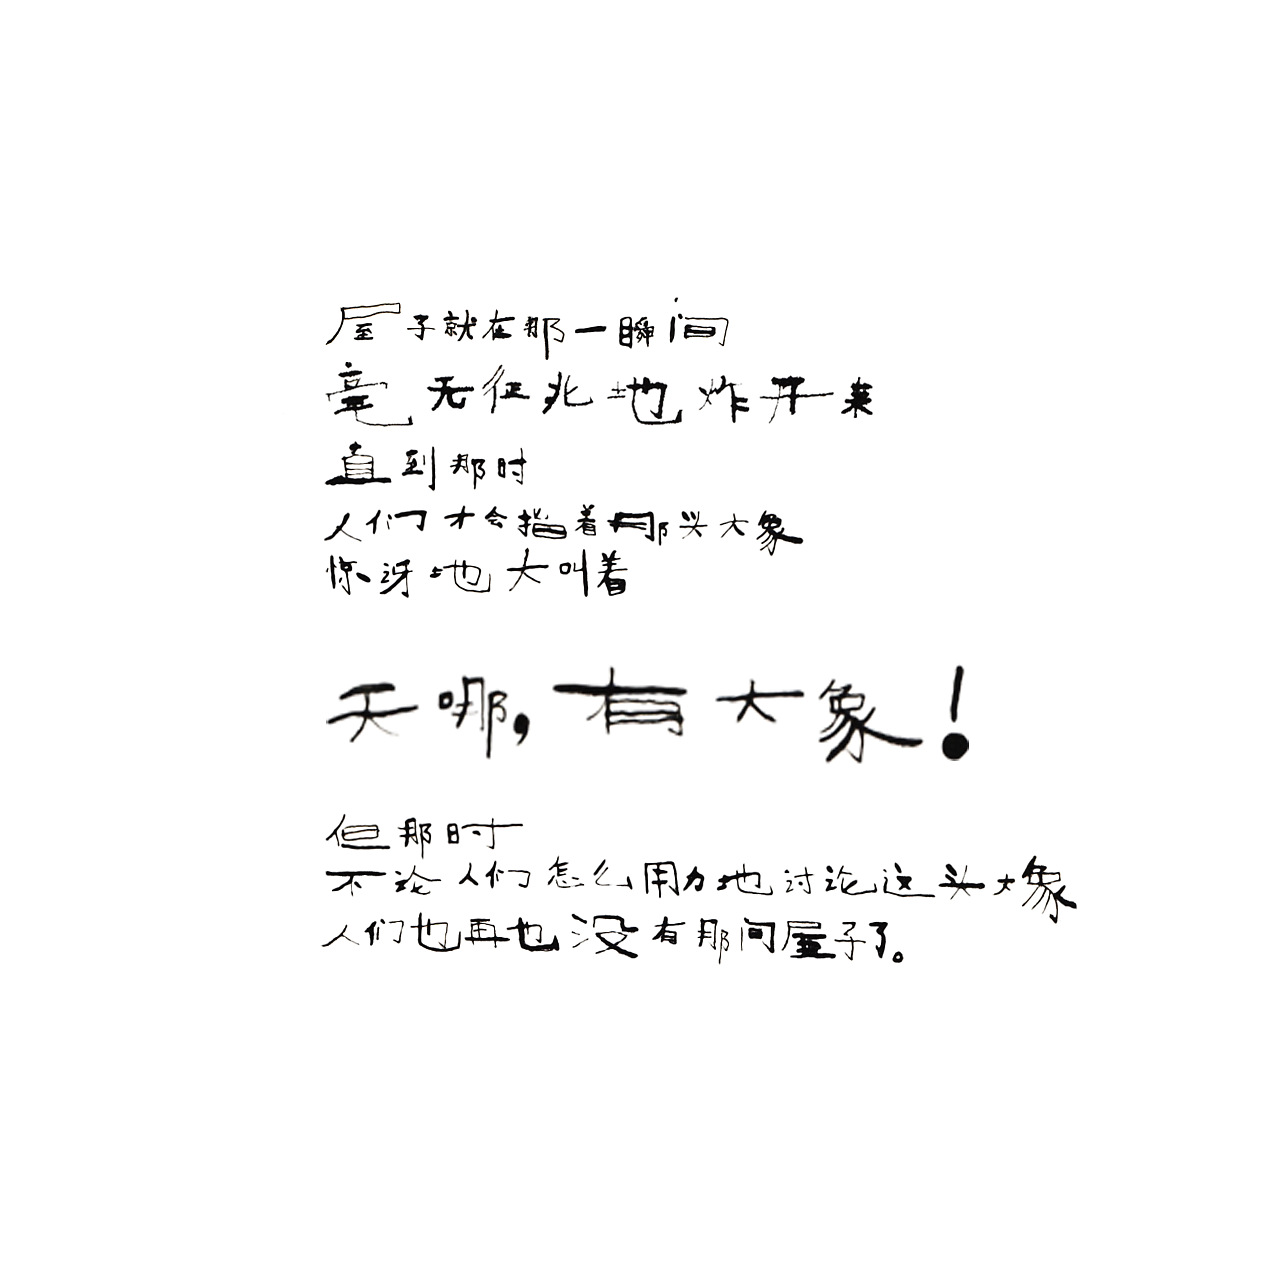 屋子就在那一瞬间
毫无征兆地炸开来
直到那时
人们才会指着那头大象
惊讶地大叫着
天哪，有大象！
但那时
不论人们怎么用力地讨论这头大象
人们也再也没有那间屋子了。